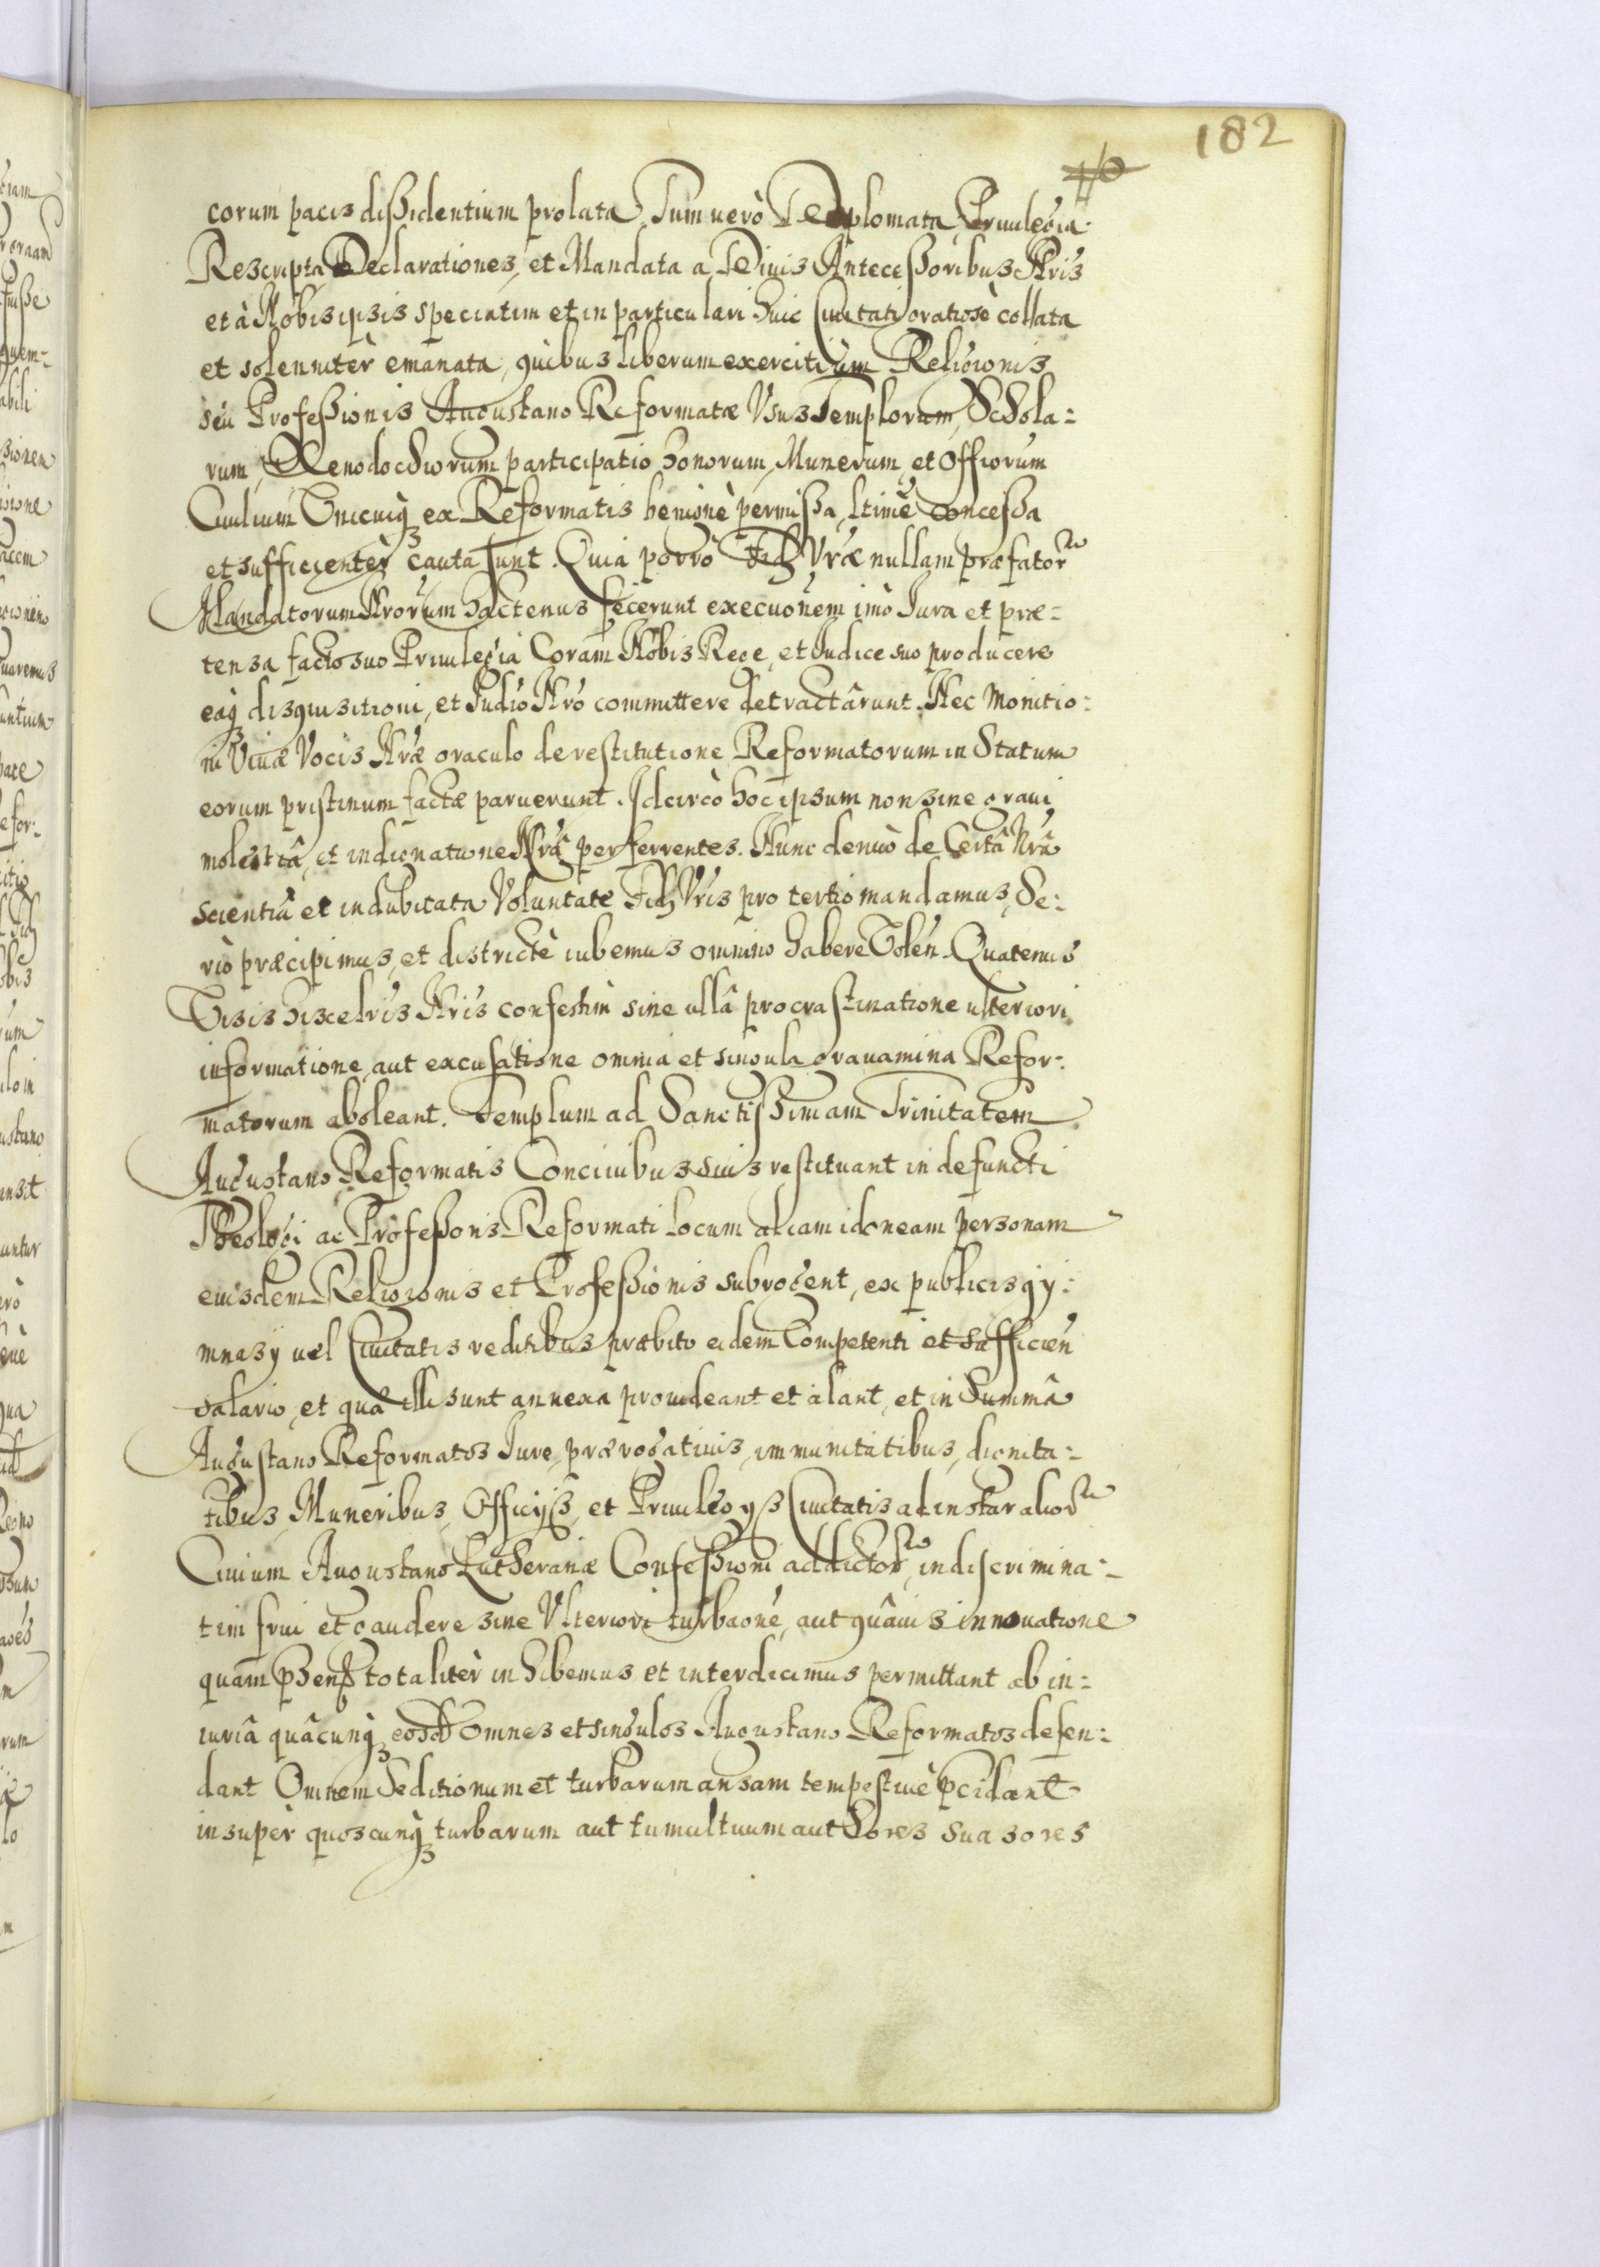 182
corum pacis dißidentium prolata. Tum uerò Diplomata, Priuilegia.
Rescripta, Declarationes, et Mandata a Diuis Anteceßoribus Nris
et à Nobis ipsis speciatim et in particulari huic Ciuitati gratiosè collata
et solenniter emanata, quibus liberum exercitium Religionis
seu Profeßionis Augustano Reformatæ Vsus Templorum, Schola-
rum, Xenodochiorum participatio honorum, Munerum, et Officiorum
Ciuilium Vnicuiq3 ex Reformatis benignè permißa, ltimè conceßa
et sufficienter cauta sunt. Quia porrò Fid3 Vræ nullam præfator
Mandatorum Nrorum hactenus fecerunt execuonem imò Iura et præ-
tensa facto suo Priuilegia Coram Nobis Rege, et Iudice suo producere
eaq3 disquisitioni, et Iudio Nro committere detractârunt. Nec Monitio:
ni Viuæ Vocis Nræ oraculo de restitutione Reformatorum in Statum
eorum pristinum factæ paruerunt. Idcircò hoc ipsum non sine graui
molestiâ, et indignatione Nrâ perferrentes. Nunc denuò de Certâ Nrâ
scientiâ et indubitata Voluntate Fid3 Vris pro tertio mandamus, Se:
riò præcipimus, et districtè iubemus omnino habere Volen. Quatenus
Visis hisce lris Nris confestim sine ullâ procrastinatione ulteriori
informatione, aut excusatione omnia et singula grauamina Refor:
matorum aboleant. Templum ad Sanctißimam Trinitatem
Augustano Reformatis Conciuibus suis restituant in defuncti
Theologi ac Profeßoris Reformati locum aliam idoneam personam
eiusdem Religionis et Profeßionis subrogent, ex publicis gy:
mnasy uel Ciuitatis reditibus præbito eidem Competenti et sufficien
salario, et quæ illi sunt annexa prouideant et alant, et in Summâ
Augustano Reformatos Iure, prærogatiuis, immunitatibus, dignita:
tibus, Muneribus, Officijs, et Priuilegys Ciuitatis ad instar alior
Ciuium Augustano Lutheranæ Confeßioni addictor, indiscrimina:
tim frui et gaudere sine Vlteriori turbaone, aut quâuis innouatione
quam totaliter inhibemus et interdicimus permittant ab in:
iuriâ quâcunq3 Omnes et singulos Augustano Reformatos defen:
dant Omnem Seditionum et turbarum ansam tempestiuè pcidant
insuper quoscunq3 turbarum aut tumultuum authores suasores